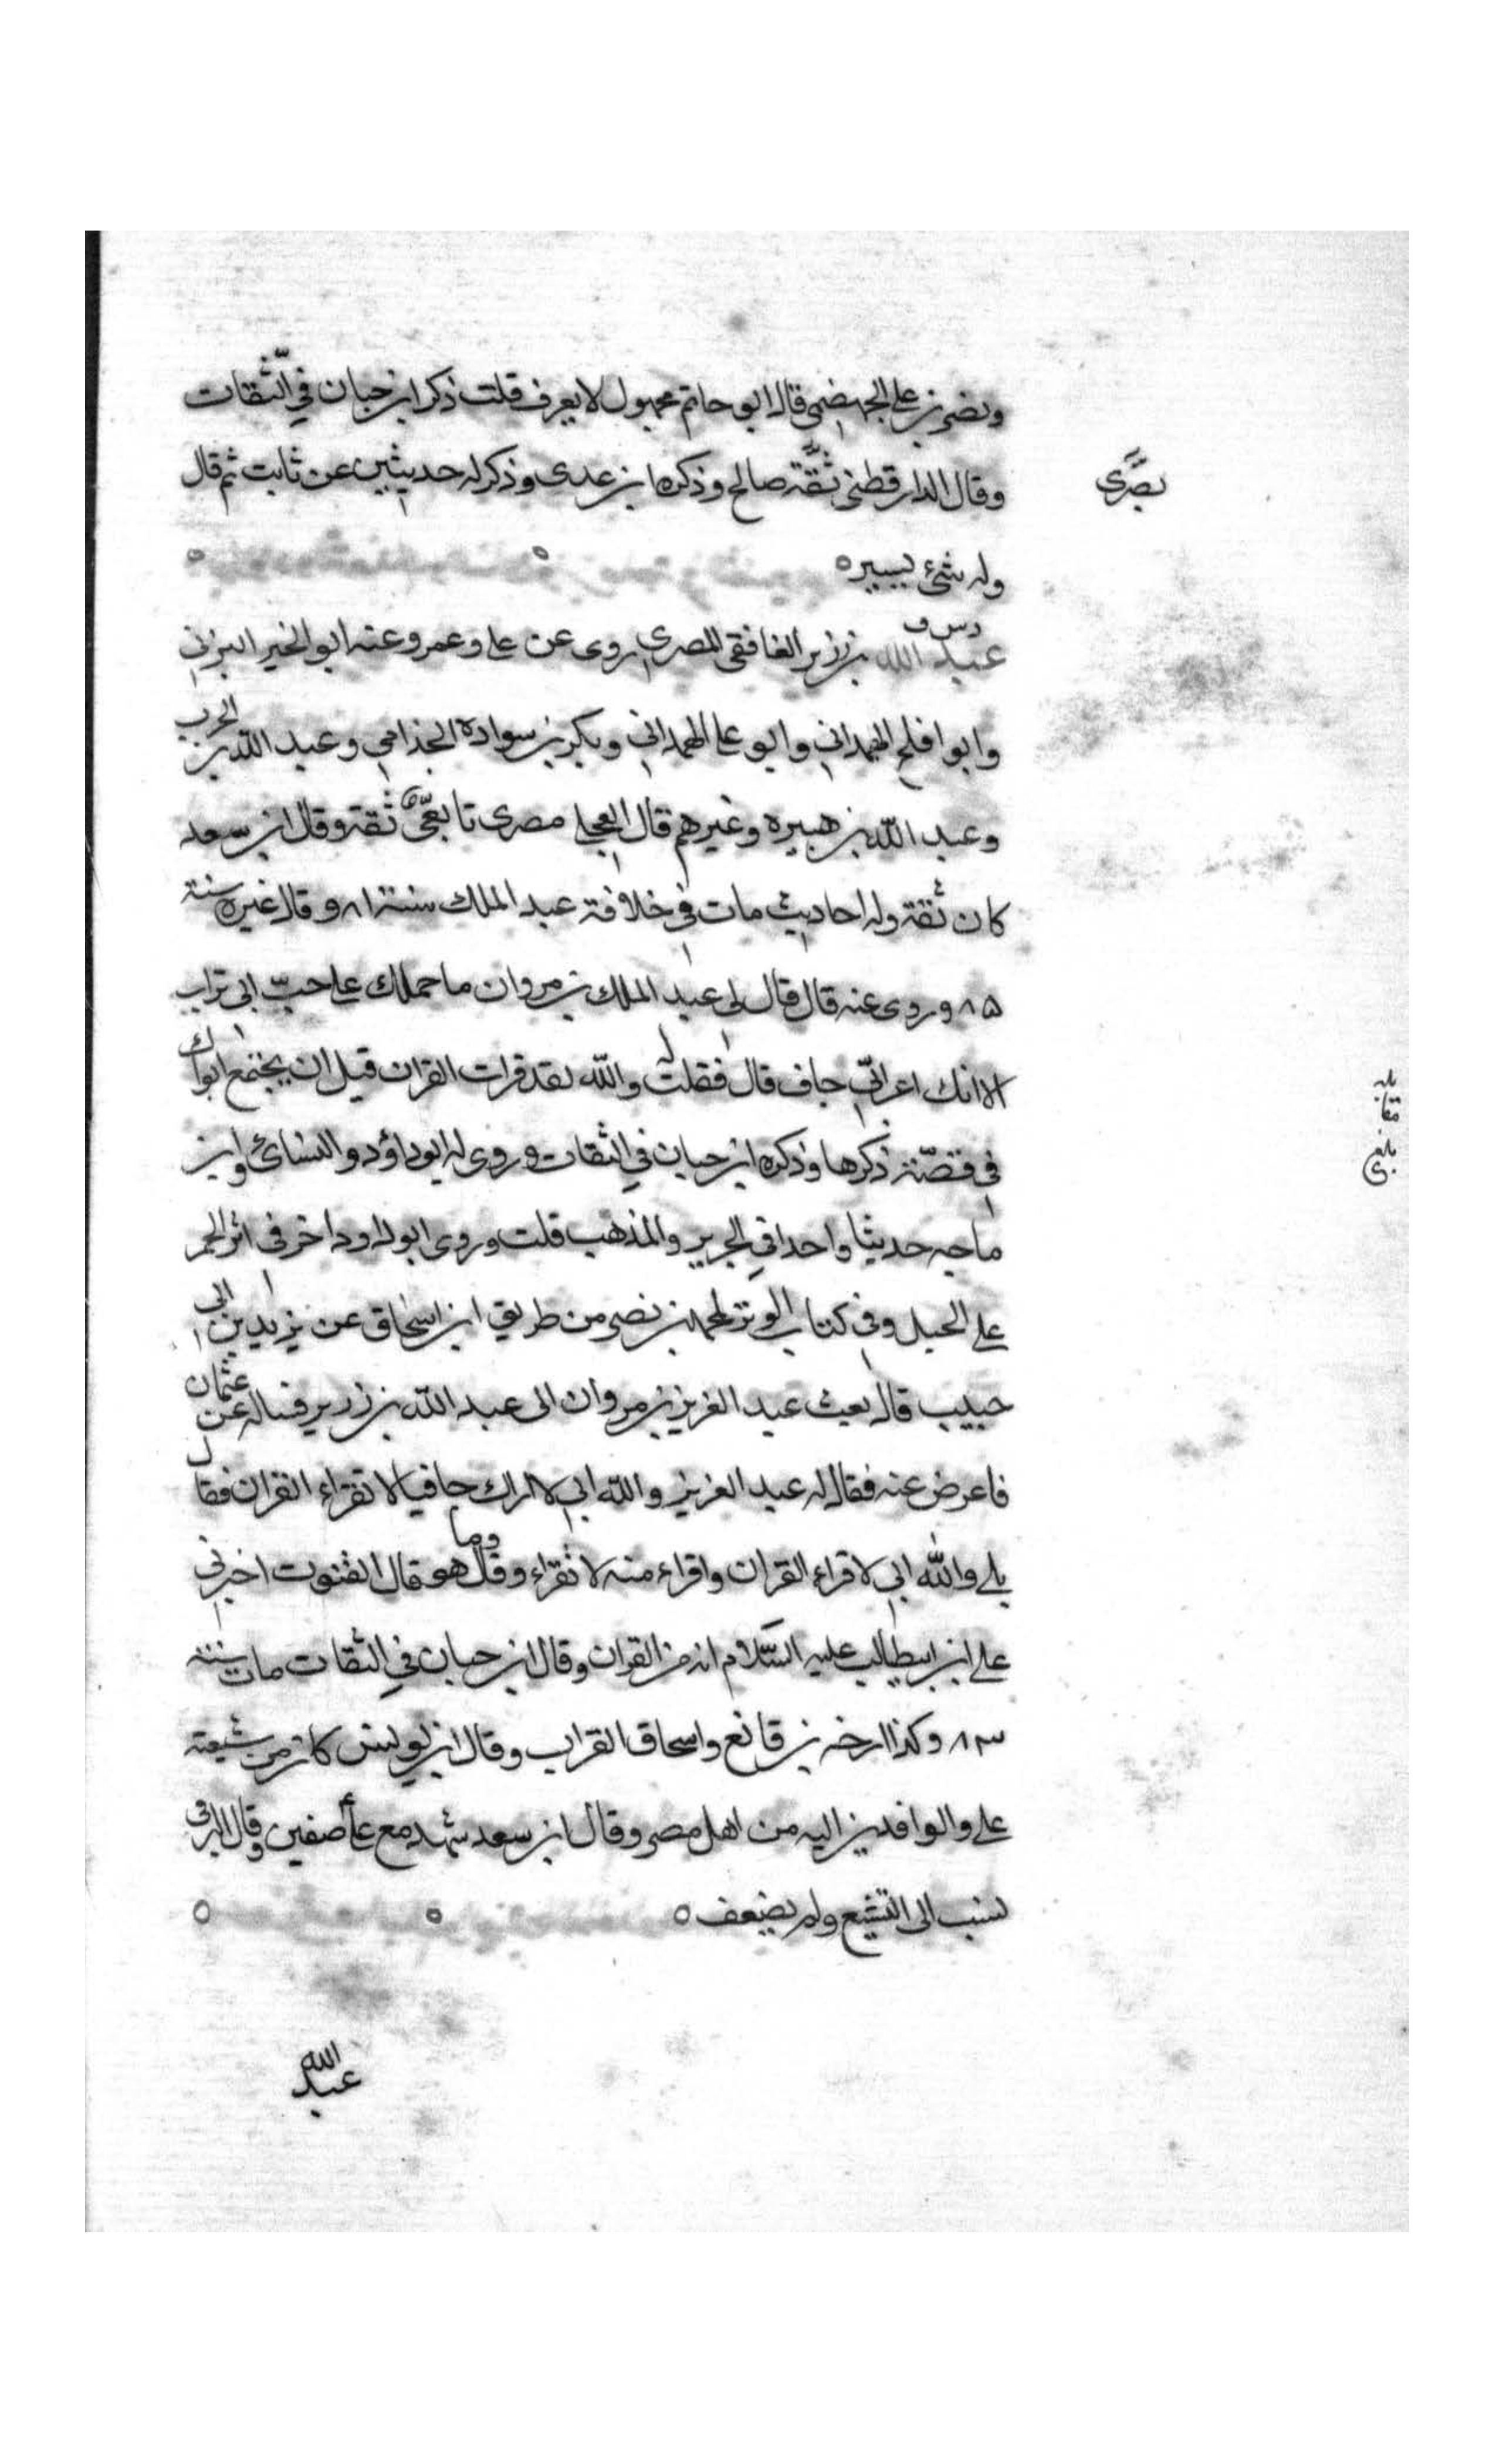 ونصر بن علي الجهضمي قال ابو حاتم مجهول لا يعرف قلت ذكر ابن حبان في الثقات
وقال الدارقطني ثقة صالح وذكره ابن عدى وذكر له حديثين عن ثابت ثم قال
بصرى
وله شئ يسير ه
د س ق
عبد الله بن زرير الغافقى المصرى روى عن على وعمر وعنه ابو الخير اليزنى
وابو افلح الهمداني وابو على الهمداني وبكر بن سوادة الجذامي وعبد الله بن الحرث
وعبد الله بن هبيره وغيرهم قال العجلى مصرى تابعى ثقة وقال ابن سعد
كان ثقة وله احاديث مات في خلافة عبد الملك سنة ٨١ وقال غيره سنة
٨٥ وروى عنه قال قال لى عبد الملك بن مروان ما حملك على حب ابى تراب
الا انك اعرابي جاف قال فقلت له والله لقد قرات القران قبل ان يجتمع ابواك
في قصة ذكرها وذكره ابن حبان في الثقات وروى له ابو داؤد والنسائي وابن
بلغ مقابله
ماجه حديثا واحدا في الحرير والذهب قلت وروى ابو داود اخر فى انزا الحمر
على الخيل وفي كتاب الوتر لمحمد بن نصر من طريق ابن اسحاق عن يزيد بن ابى
حبيب قال بعث عبد العزيز بن مروان الى عبد الله بن زرير فساله عن عثمان
فاعرض عنه فقال له عبد العزيز والله انى لاراك جافيا لا تقراء القران فقال
بلى والله انى لاقراء القران واقراء منه لا تقراء وقال وما هو قال القنوت اخبرنى
على ابن ابيطالب عليه السلام انه من القران وقال ابن حبان في الثقات مات سنة
٨٣ وكذا ارخه بن قانع واسحاق القراب وقال ابن يونس كان من شيعة
على والوافدين اليه من اهل مصر وقال ابن سعد شهد مع على صفين وقال البرقى
نسب الى التشيع ولم يضعف ه
عبد الله